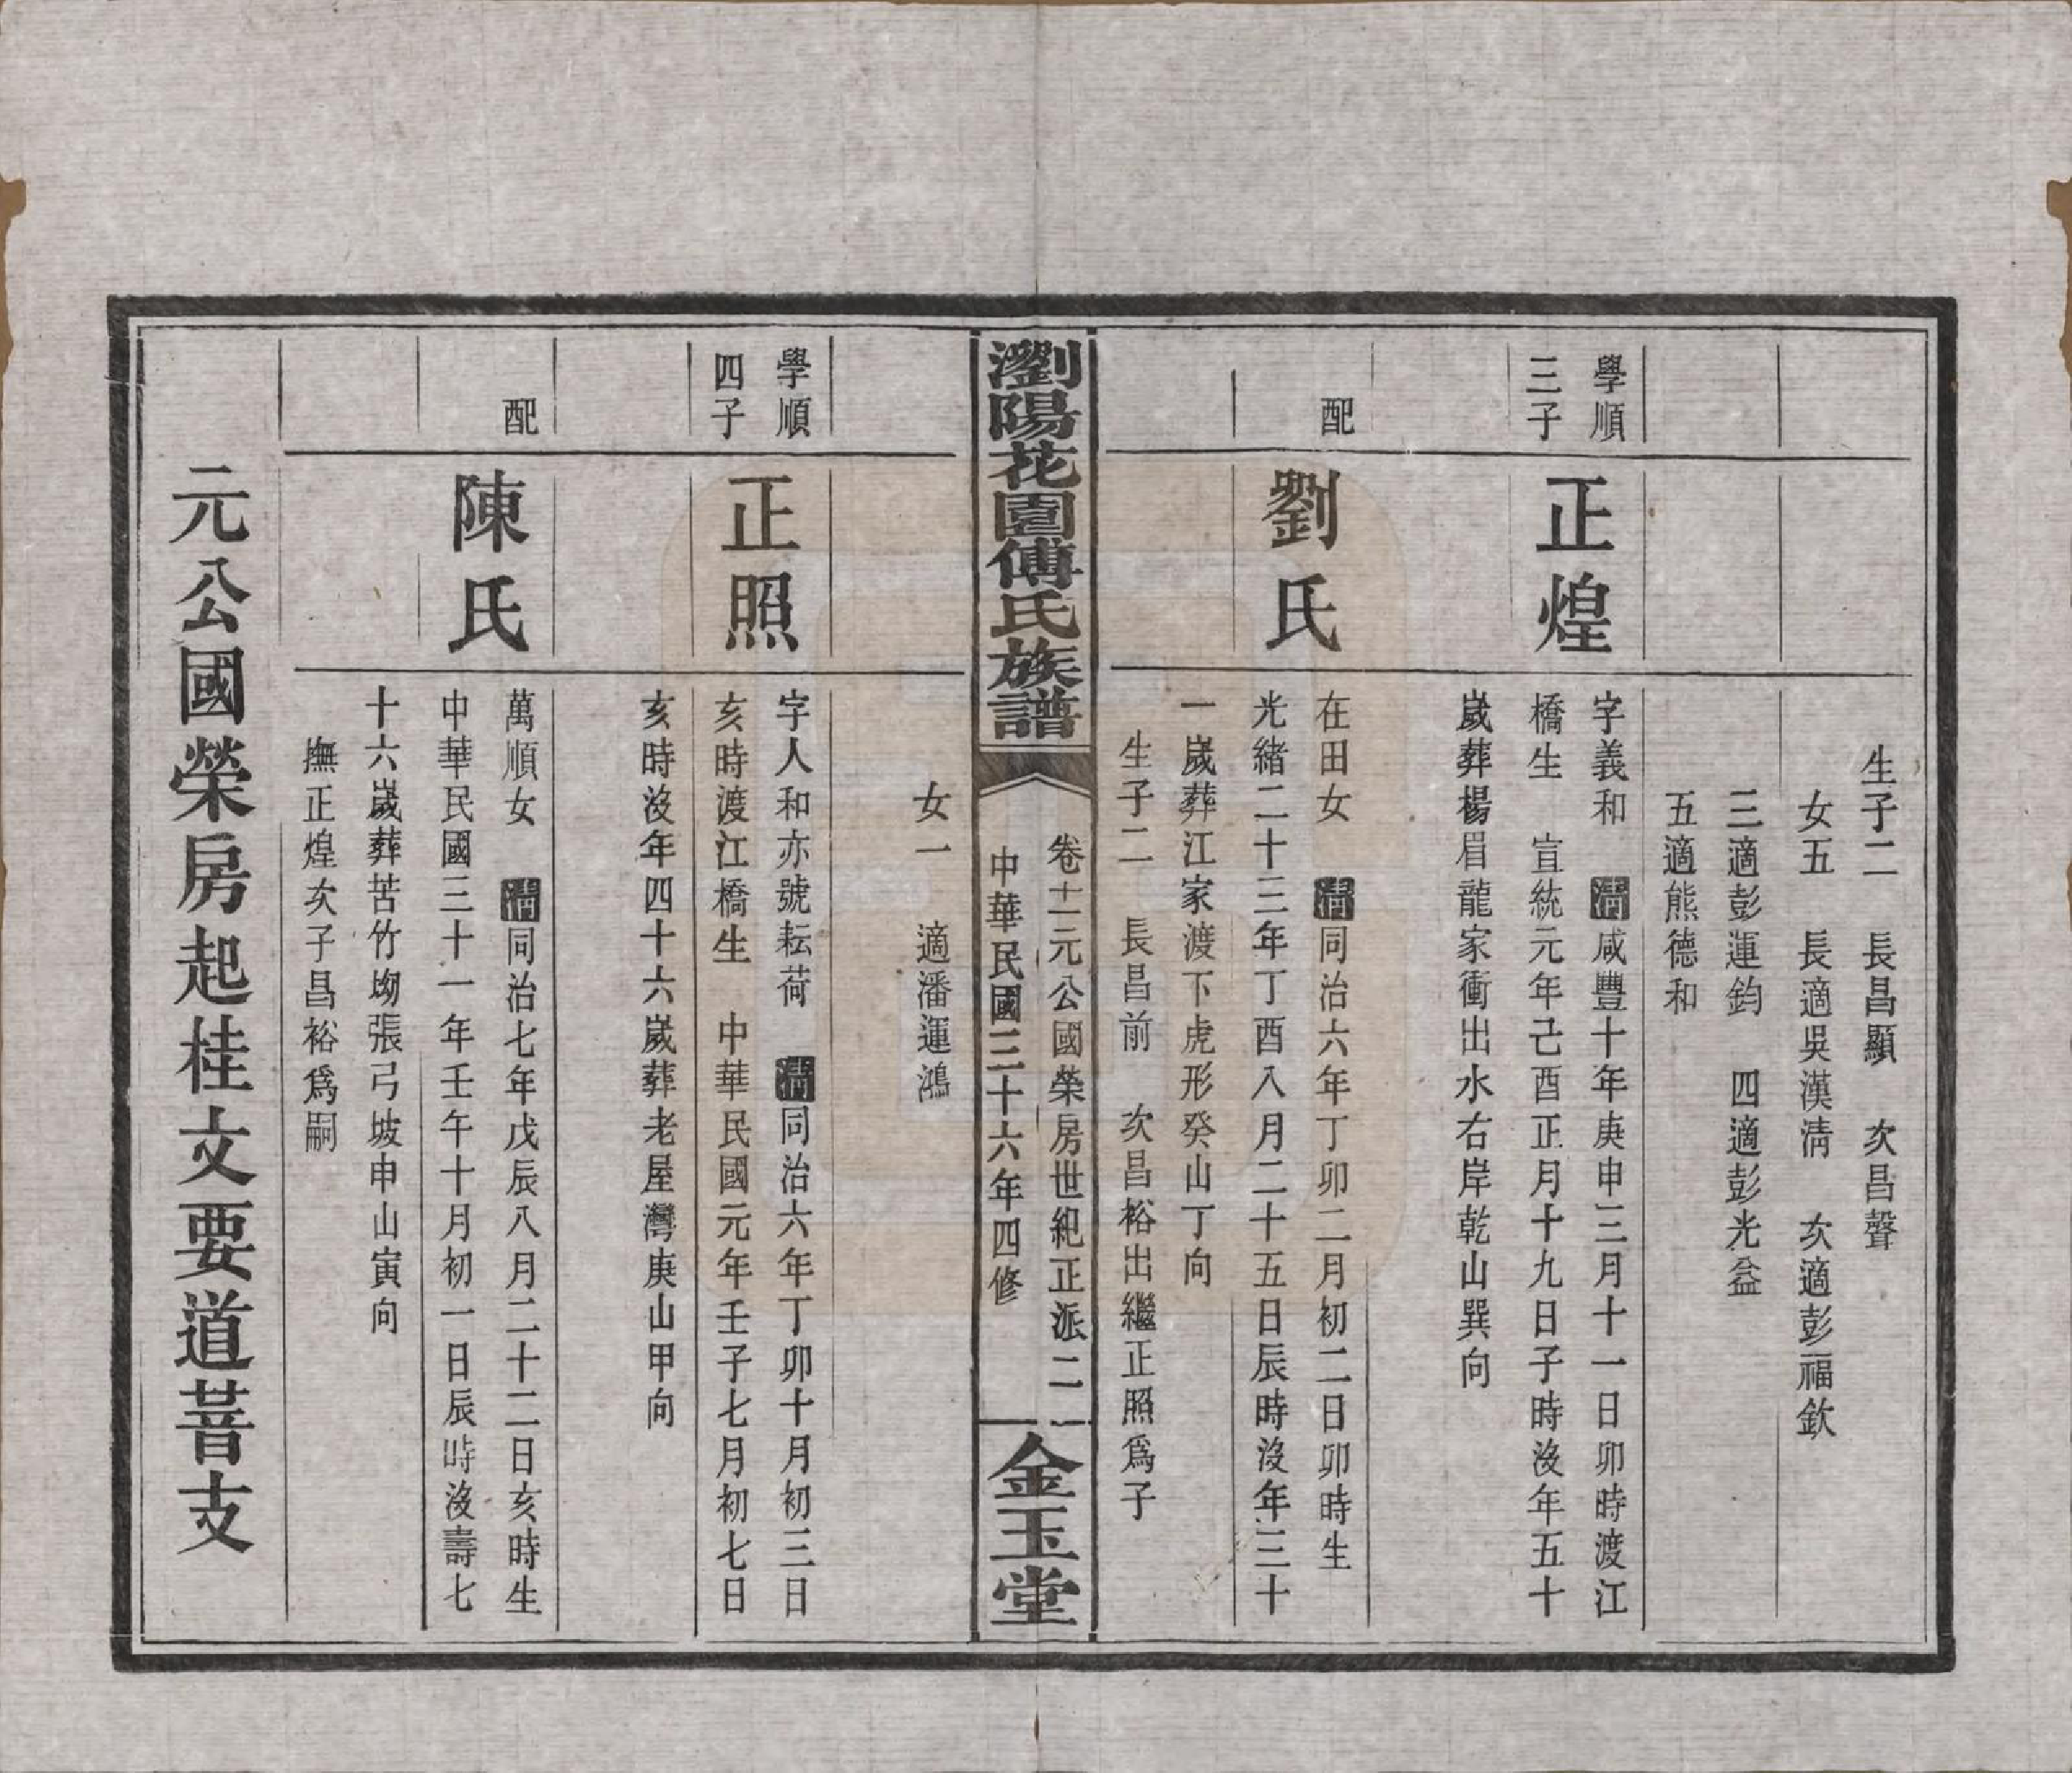 生子二　長昌顯　次昌聲
女五　長適吳漢清　次適彭福欽
三適彭運鈞　四適彭光益
五適熊德和
學順
三子
正煌
字義和　清咸豐十年庚申三月十一日卯時渡江
橋生　宣統元年己酉正月十九日子時沒年五十
歲葬楊眉龍家衝出水右岸乾山巽向
配
劉氏
在田女　清同治六年丁卯二月初二日卯時生
光緒二十三年丁酉八月二十五日辰時沒年三十
一歲葬江家渡下虎形癸山丁向
生子二　長昌前　次昌裕出繼正照爲子
瀏陽花園傅氏族譜
卷十一元公國榮房世紀正派二一
中華民國三十六年四修
金玉堂
女一　適潘運鴻
學順
四子
正照
字人和亦號耘荷　清同治六年丁卯十月初三日
亥時渡江橋生　中華民國元年壬子七月初七日
亥時沒年四十六歲葬老屋灣庚山甲向
配
陳氏
萬順女　清同治七年戊辰八月二十二日亥時生
中華民國三十一年壬午十月初一日辰時沒壽七
十六歲葬苦竹坳張弓坡申山寅向
撫正煌次子昌裕爲嗣
元公國榮房起桂文要道萻支